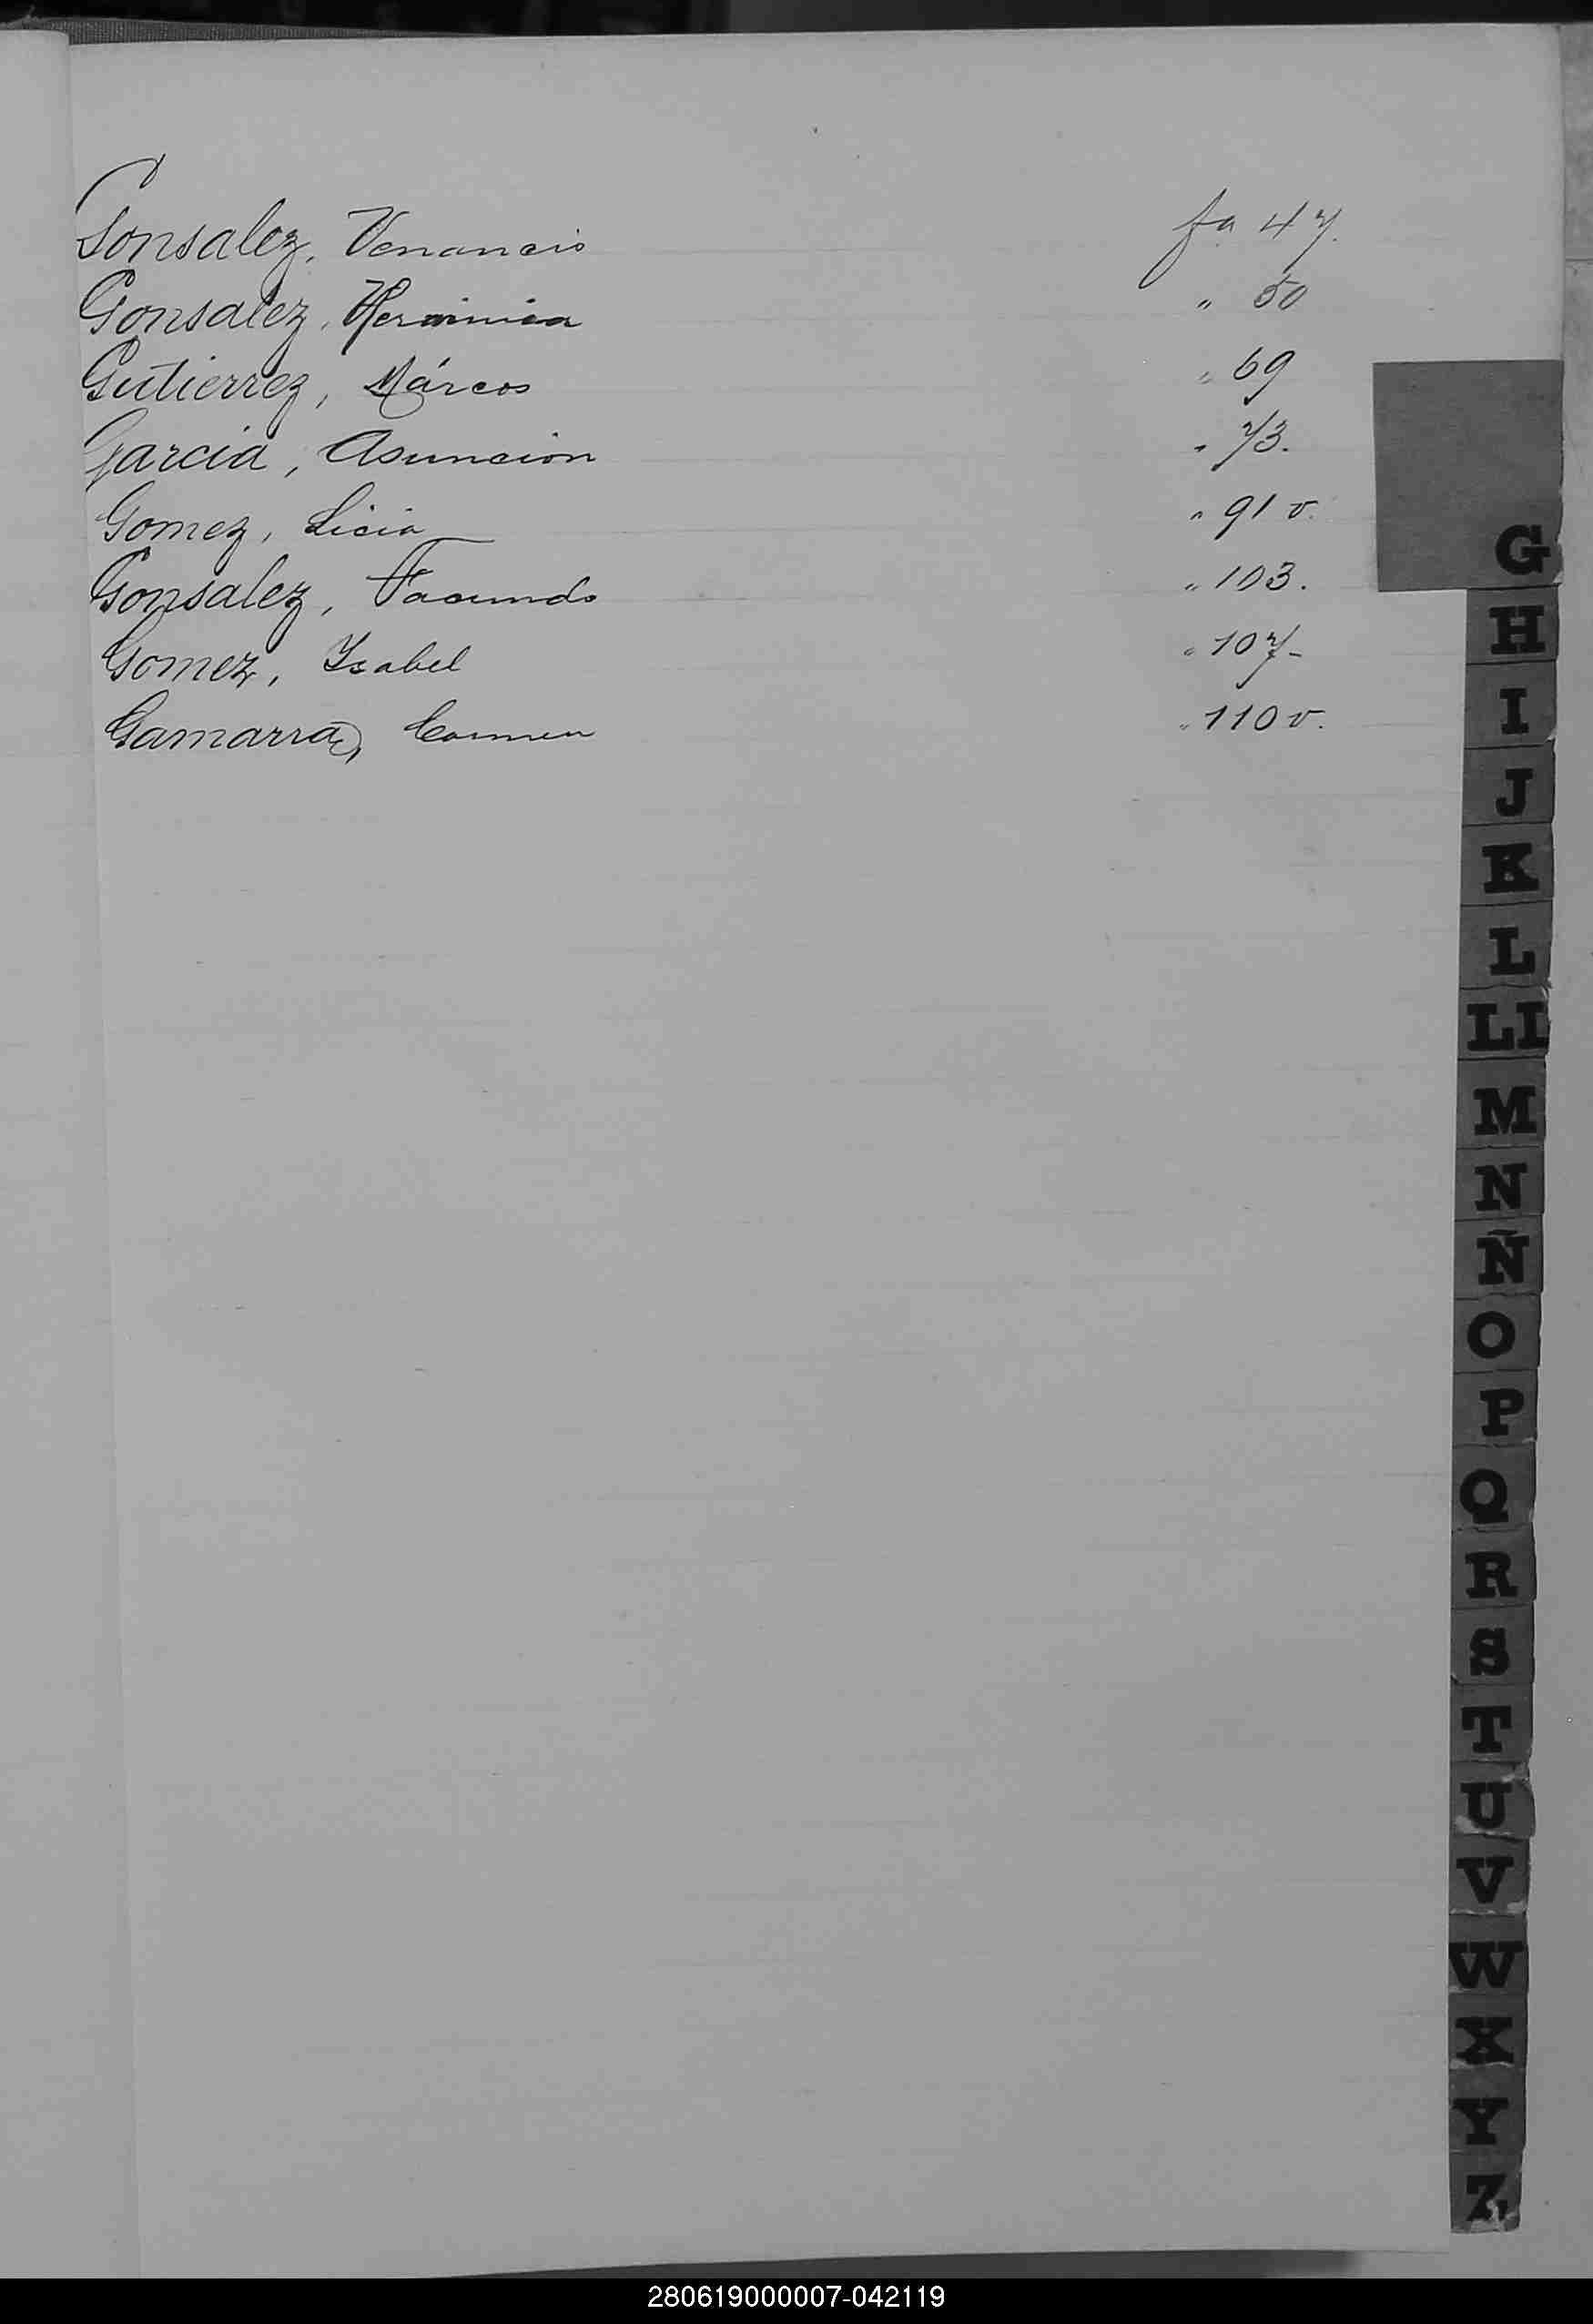 Gonsalez, Venancio fa 47.
Gonsalez, Herminia " 50
Gutierrez, Márcos " 69
Garcia, Asuncion " 73.
Gomez, Licia " 91 v.
Gonsalez, Facundo " 103.
Gomez, Isabel " 107-
Gamarra, Carmen " 110 v.
G
H
I
J
K
L
LL
M
N
Ñ
O
P
Q
R
S
T
U
V
W
X
Y
Z
280619000007-042119